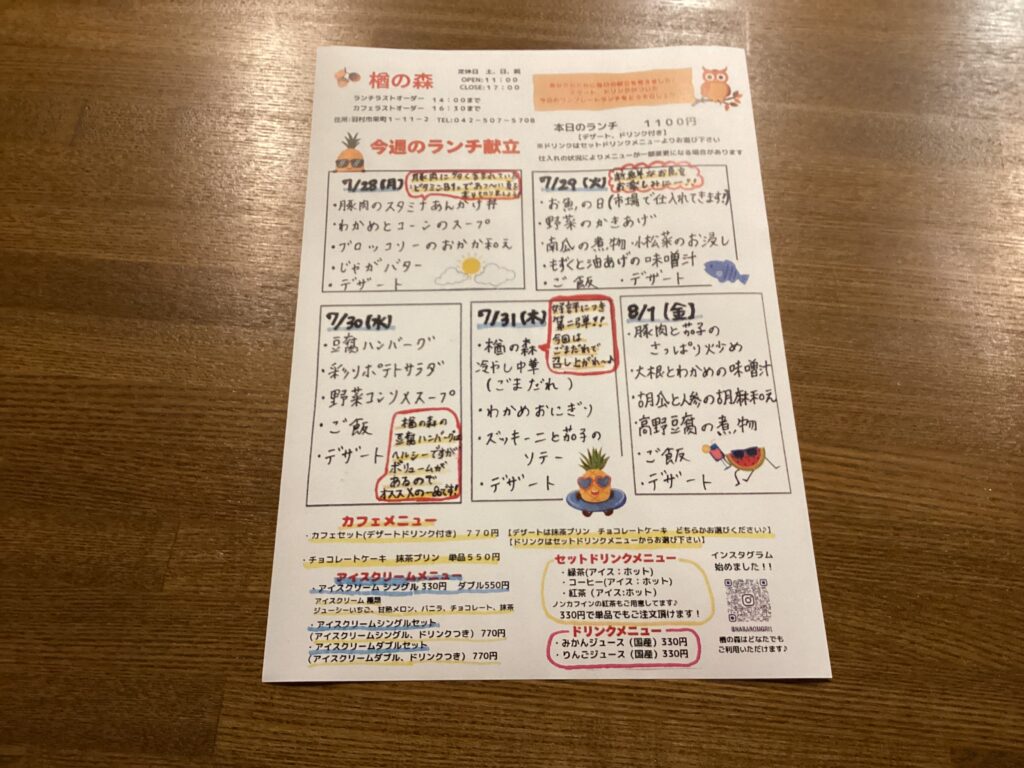 楢の森
定休日 土、日、祝
OPEN:11:00
CLOSE:17:00
ランチラストオーダー 14:00まで
カフェラストオーダー 16:30まで
住所:羽村市栄町1-11-2 TEL:042-507-5708
本日のランチ 1100円
【デザート、ドリンク付き】
※ドリンクはセットドリンクメニューよりお選び下さい
仕入れの状況によりメニューが一部変更になる場合があります
今週のランチ献立
7/28(月)
豚肉に多く含まれている
ビタミンB1
・豚肉のスタミナあんかけ丼
・わかめとコーンのスープ
・ブロッコリーのおかか和え
・じゃがバター
・デザート
7/29(火)
新鮮なお魚を
お楽しみに〜!!
・お魚の日(市場で仕入れてきます!)
・野菜のかきあげ
・南瓜の煮物・小松菜のお浸し
・もずくと油あげの味噌汁
・ご飯 ・デザート
7/30(水)
・豆腐ハンバーグ
・彩りポテトサラダ
・野菜コンソメスープ
・ご飯
・デザート
楢の森の
豆腐ハンバーグは
ヘルシーですが
ボリュームが
あるので
オススメの一品です!
7/31(木)
好評につき
第二弾!!
今回は
ごまだれで
召し上がれ〜♪
・楢の森
冷やし中華
(ごまだれ)
・わかめおにぎり
・ズッキーニと茄子の
ソテー
・デザート
8/1(金)
・豚肉と茄子の
さっぱり炒め
・大根とわかめの味噌汁
・胡瓜と人参の胡麻和え
・高野豆腐の煮物
・ご飯
・デザート
カフェメニュー
・カフェセット(デザートドリンク付き) 770円 【デザートは抹茶プリン チョコレートケーキ どちらかお選びください♪】
【ドリンクはセットドリンクメニューからお選び下さい】
・チョコレートケーキ 抹茶プリン 単品550円
アイスクリームメニュー
・アイスクリーム シングル330円 ダブル550円
アイスクリーム種類
ジューシーいちご、甘熟メロン、バニラ、チョコレート、抹茶
・アイスクリームシングルセット
(アイスクリームシングル、ドリンクつき) 770円
・アイスクリームダブルセット
(アイスクリームダブル、ドリンクつき) 770円
セットドリンクメニュー
・緑茶(アイス:ホット)
・コーヒー(アイス:ホット)
・紅茶(アイス:ホット)
ノンカフインの紅茶もご用意してます♪
330円で単品でもご注文頂けます!
ドリンクメニュー
・みかんジュース(国産)330円
・りんごジュース(国産)330円
インスタグラム
始めました!!
楢の森はどなたでも
ご利用いただけます♪